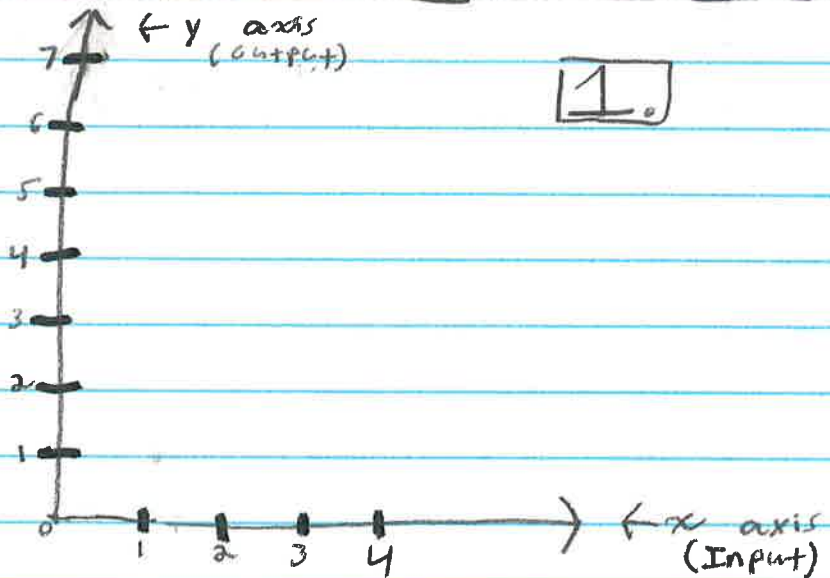 ← y axis
(output)
7
1.
6
5
4
3
2
1
0
1 2 3 4
← x axis
(Input)